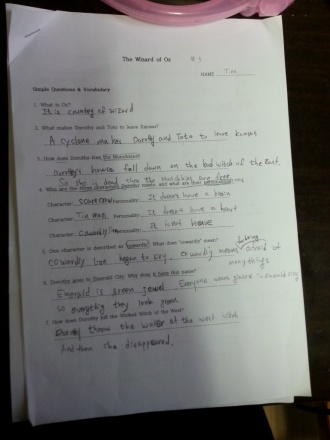 The Wizard of Oz #3
NAME : Tim
Simple Questions & Vocabulary
1. What is Oz?
It is country of wizard
2. What makes Dorothy and Toto to leave Kansas?
A cyclone makes Dorothy and Toto to leave kansas
3. How does Dorothy free the Munchkins?
Dorothy's house fall down on the bad witch of the East.
So she is dead then the Munchkins are free.
4. Who are the three characters Dorothy meets and what are their personalities?
Character: scarecrow Personality: It doesn't have a brain
Character: Tin man Personality: It doesn't have a heart
Character: cowardly lion Personality: It is not brave
5. One character is described as "cowardly". What does "cowardly" mean?
cowardly lion began to cry. cowardly means to bring afraid of
many things
6. Dorothy goes to Emerald City. Why does it have this name?
Emerald is green jewel. Everyone wears glasses in Emerald city
so everything they look green
7. How does Dorothy kill the Wicked Witch of the West?
Dorothy throw the water at the west witch
And then she disappeared.